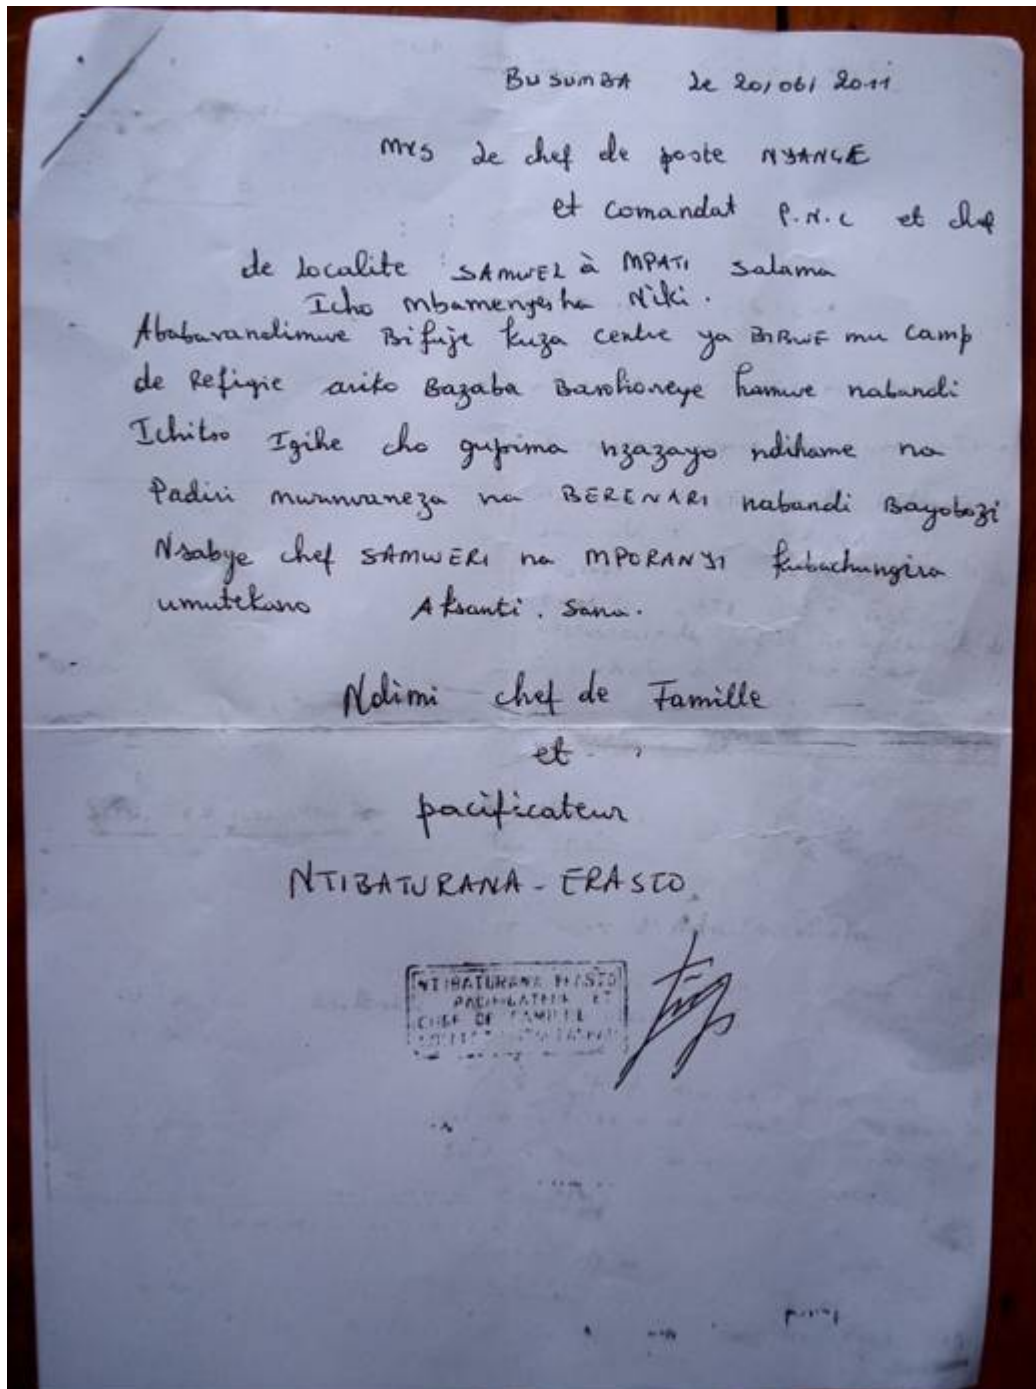 BUSUMBA le 20/06/2011
Mrs le chef de poste NYANGE
et comandat P.N.C et chef
de Localite SAMWEL à MPATI Salama
Icho mbamenyesha Niki.
Ababavandimwe Bifuje kuza centre ya BIBWE mu camp
de Refigie ariko Bazaba Bashoneye hamwe nabandi
Ichitso Igihe cho gupima nzazayo ndihame na
Padiri munwaneza na BERENARI nabandi Bayobozi
Nsabye chef SAMWERI na MPORANYI kubachungira
umutekano Aksanti. Sana.
Ndimi chef de Famille
et
pacificateur
NTIBATURANA - ERASTO
NTIBATURANA ERASTO
PACIFICATEUR ET
CHEF DE FAMILLE